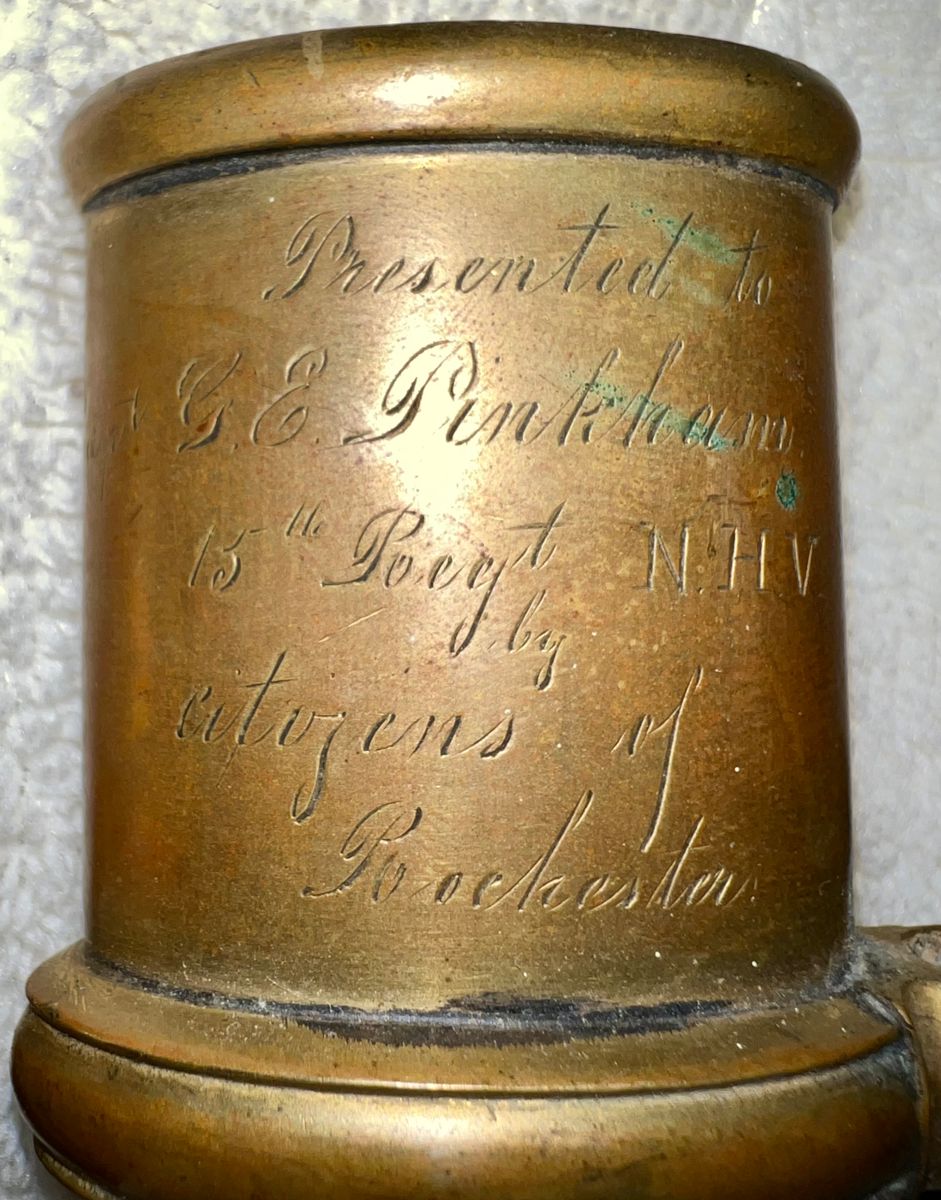 Presented to
G. E. Pinkham.
15th Regt N.H.V.
by
citizens of
Rochester.